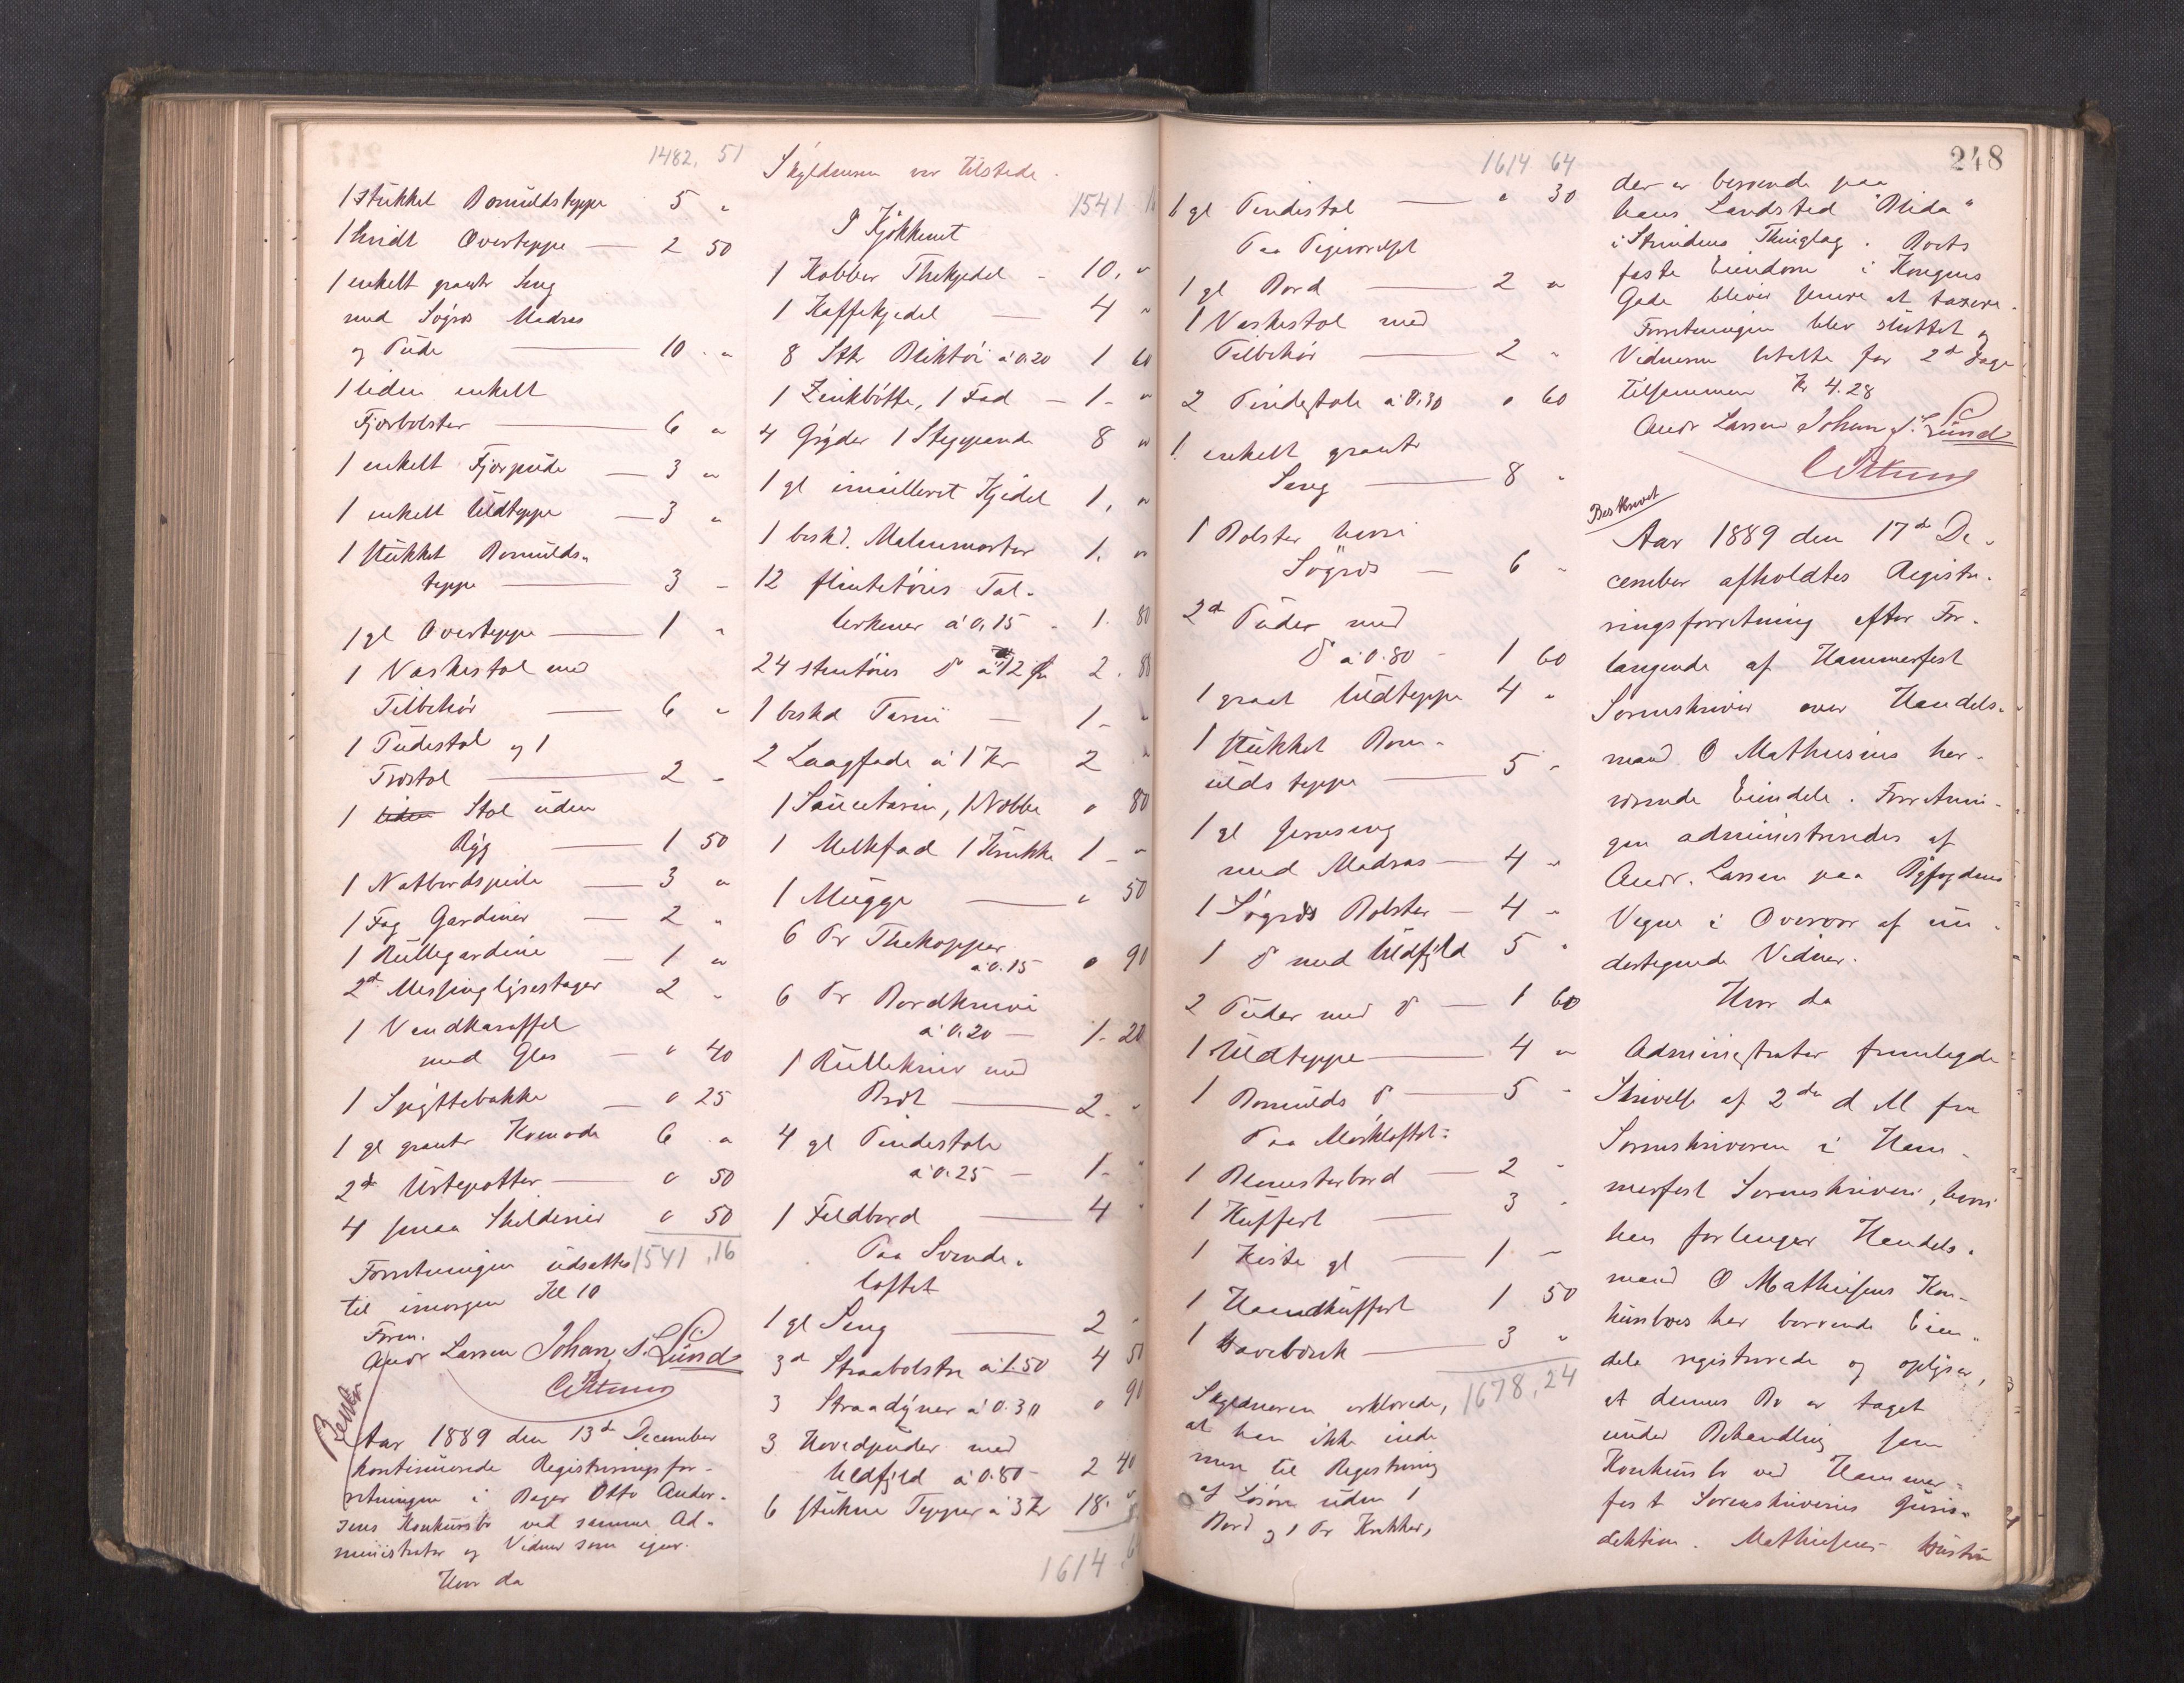 1482, 51
1 stukket Bomuldsteppe 5 "
1 hvidt Overteppe — 2 50
1 enkelt graat Seng
med Søgræs Madras
og Pude — 10 "
1 liden enkelt
Fjærbolster — 6 "
1 enkelt Fjærpude — 3 "
1 enkelt Uldteppe — 3 "
1 stukket Bomulds-
teppe — 3 -
1 gl Overteppe — 1 "
1 Vaskestol med
Tilbehør — 6 "
1 Pindestol og 1
Træstol — 2 -
1 liden Stol uden
Ryg — 1 50
1 Natbordspude — 3 "
1 Fag Gardiner — 2 "
1 Rullegardine — 1 "
2de Messinglysestager 2 "
1 Vandkaraffel
med Glas — " 40
1 Spyttebakke — " 25
1 gl graat Komode 6 "
2de Urtepotter — " 50
4 smaa Skilderier " 50
1541,16
Forretningen udsattes
til imorgen Kl 10
Forev.
Andr Larsen Johan S. Lund
Aar 1889 den 13de December
kontinuerede Registreringsfor-
retningen i Bager Otto Ander-
sens Konkursbo ved samme Ad-
ministrator og Vidner som igaar.
Hvor da
Skyldneren var tilstede.
1541
I Kjøkkenet
1 Kobber Thekjedel - 10, "
1 Kaffekjedel — 4 "
8 Stk Bliktøi à 0.20 1 60
1 Zinkbøtte, 1 Fad — 1 - "
4 Gryder 1 Stegepande 8 "
1 gl emailleret Kjedel 1, "
1 beskd. Malmmorter 1, "
12 flintetøies Tal-
lerkener à 0,15 - 1. 80
24 stentøies do à 12 2. 88
1 beskd Terrin — 1 - "
2 Laagfade à 1 Kr 2 "
1 Sauceterrin, 1 Nobbe " 80
1 Melkfad 1 Krukke 1 - "
1 Mugge — " 50
6 Pr Thekopper
à 0.15 " 90
6 Pr Bordknive
à 0.20 — 1. 20
1 Rullekniv med
Bræt — 2. "
4 gl Pindestole
à 0.25 — 1 - "
1 Feldbord — 4 "
Paa Svende-
loftet
1 gl Seng — 2 "
3de Straabolstre à 1.50 4 50
3 Straadyner à 0.30 " 90
3 Hovedpuder med
Uldfyld à 0.80 - 2 40
6 stukne Tepper à 3 Kr 18. "
1614
248
1614 64
1 gl Pindestol — " 30
Paa Pigeværelset
1 gl Bord — 2 "
1 Vaskestol med
Tilbehør — 2 "
2 Pindestole à 0.30 " 60
1 enkelt graat
Seng — 8 "
1 Bolster heri
Søgræs — 6 "
2de Puder med
do à 0.80 - 1 60
1 graat Uldteppe 4 "
1 stukket Bom-
ulds teppe — 5 "
1 gl Jernseng
med Madras — 4 "
1 Søgræs Bolster — 4 "
1 do med Uldfyld 5 "
2 Puder med do — 1 60
1 Uldteppe — 4 "
1 Bomulds do — 5 "
Paa Mørkloftet:
1 Blomsterbord — 2 "
1 Kuffert — 3 "
1 Kiste gl — 1 —
1 Haandkuffert 1 50
1 Havebænk — 3 "
1678,24
Skyldneren erklærede,
at han ikke havde
mere til Registrering
af Løsøre uden 1
Bord og 1 Pr Krakker,
der er beroende paa
hans Landsted "Blida"
i Strindens Thinglag. Boets
faste Eiendom i Kongens
Gade bliver senere at taxere.
Forretningen blev sluttet og
Vidnerne betalte for 2de Dage
tilsammen Kr 4.28
Andr Larsen Johan S. Lund
Beskrevet
Aar 1889 den 17de De-
cember afholdtes Registre-
ringsforretning efter For-
langende af Hammerfest
Sorenskriver over Handels-
mand O Mathisens her-
værende Eiendele. Forretnin-
gen administreredes af
Andr. Larsen paa Byfogdens
Vegne i Overvær af un-
dertegnede Vidner.
Hvor da
Administrator fremlagde
Skrivelse af 2den d M fra
Sorenskriveren i Ham-
merfest Sorenskriveri, hvori
han forlanger Handels-
mand O Mathisens Kon-
kursboes her værende Eien-
dele registrerede og oplyser,
at dennes Bo er taget
under Behandling som
Konkursbo ved Hammer-
fest Sorenskriveries Juris-
diktion. Mathisens Hustru